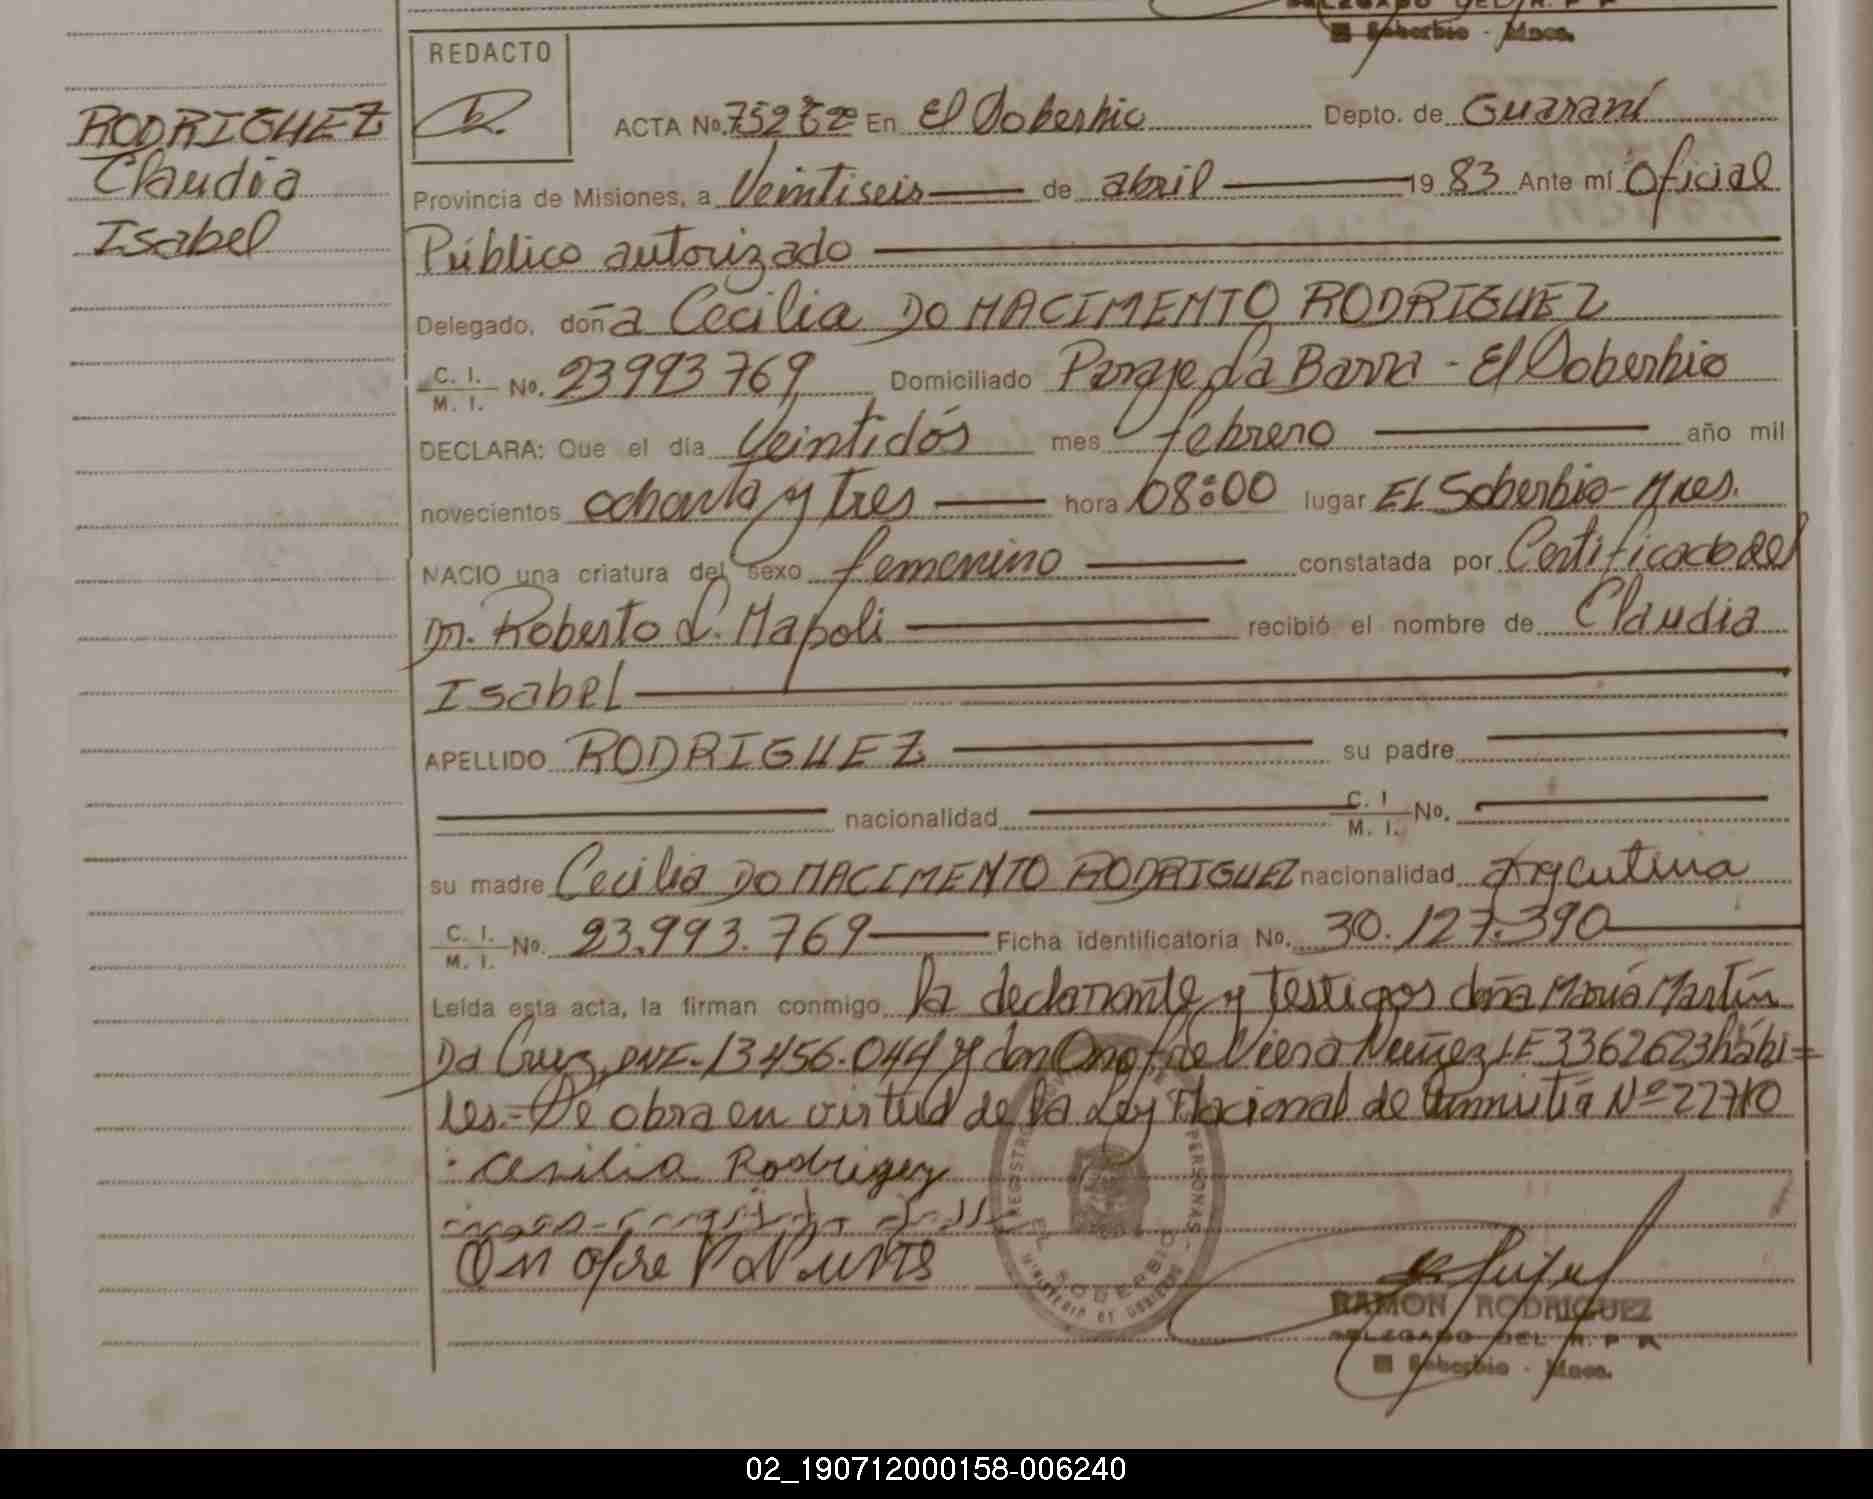 DELEGADO DEL R. P. P
El Soberbio - Mnes.
REDACTO
RODRIGUEZ
Claudia
Isabel
ACTA No. 752 En El Soberbio Depto. de Guaraní
Provincia de Misiones, a Veintiseis de abril 19 83 Ante mí Oficial
Público autorizado
Delegado, doña Cecilia DO NACIMENTO RODRIGUEZ
C. I. / M. I. No. 23993769, Domiciliado Paraje La Barra - El Soberbio
DECLARA: Que el día Veintidós mes febrero año mil
novecientos ochenta y tres hora 08:00 lugar EL Soberbio - Mnes.
NACIO una criatura del sexo femenino constatada por Certificado del
Dr. Roberto L. Napoli recibió el nombre de Claudia
Isabel
APELLIDO RODRIGUEZ su padre
nacionalidad C. I / M. I. No.
su madre Cecilia DO NACIMENTO RODRIGUEZ nacionalidad Argentina
C. I. / M. I. No. 23.993.769 Ficha identificatoria No. 30.127.390
Leída esta acta, la firman conmigo la declarante y testigos doña María Martín
Da Cruz, DNI. 13456.044 y don Onofre Viera Nuñez LE 3362623 hábi=
les.- Se obra en virtud de la Ley Nacional de Amnistía Nº 22710
Cesilia Rodriguez
Onofre
REGISTRO PERSONAS
EL SOBERBIO
MINISTERIO DE GOBIERNO
RAMON RODRIGUEZ
DELEGADO DEL R. P. P
El Soberbio - Mnes.
02_190712000158-006240